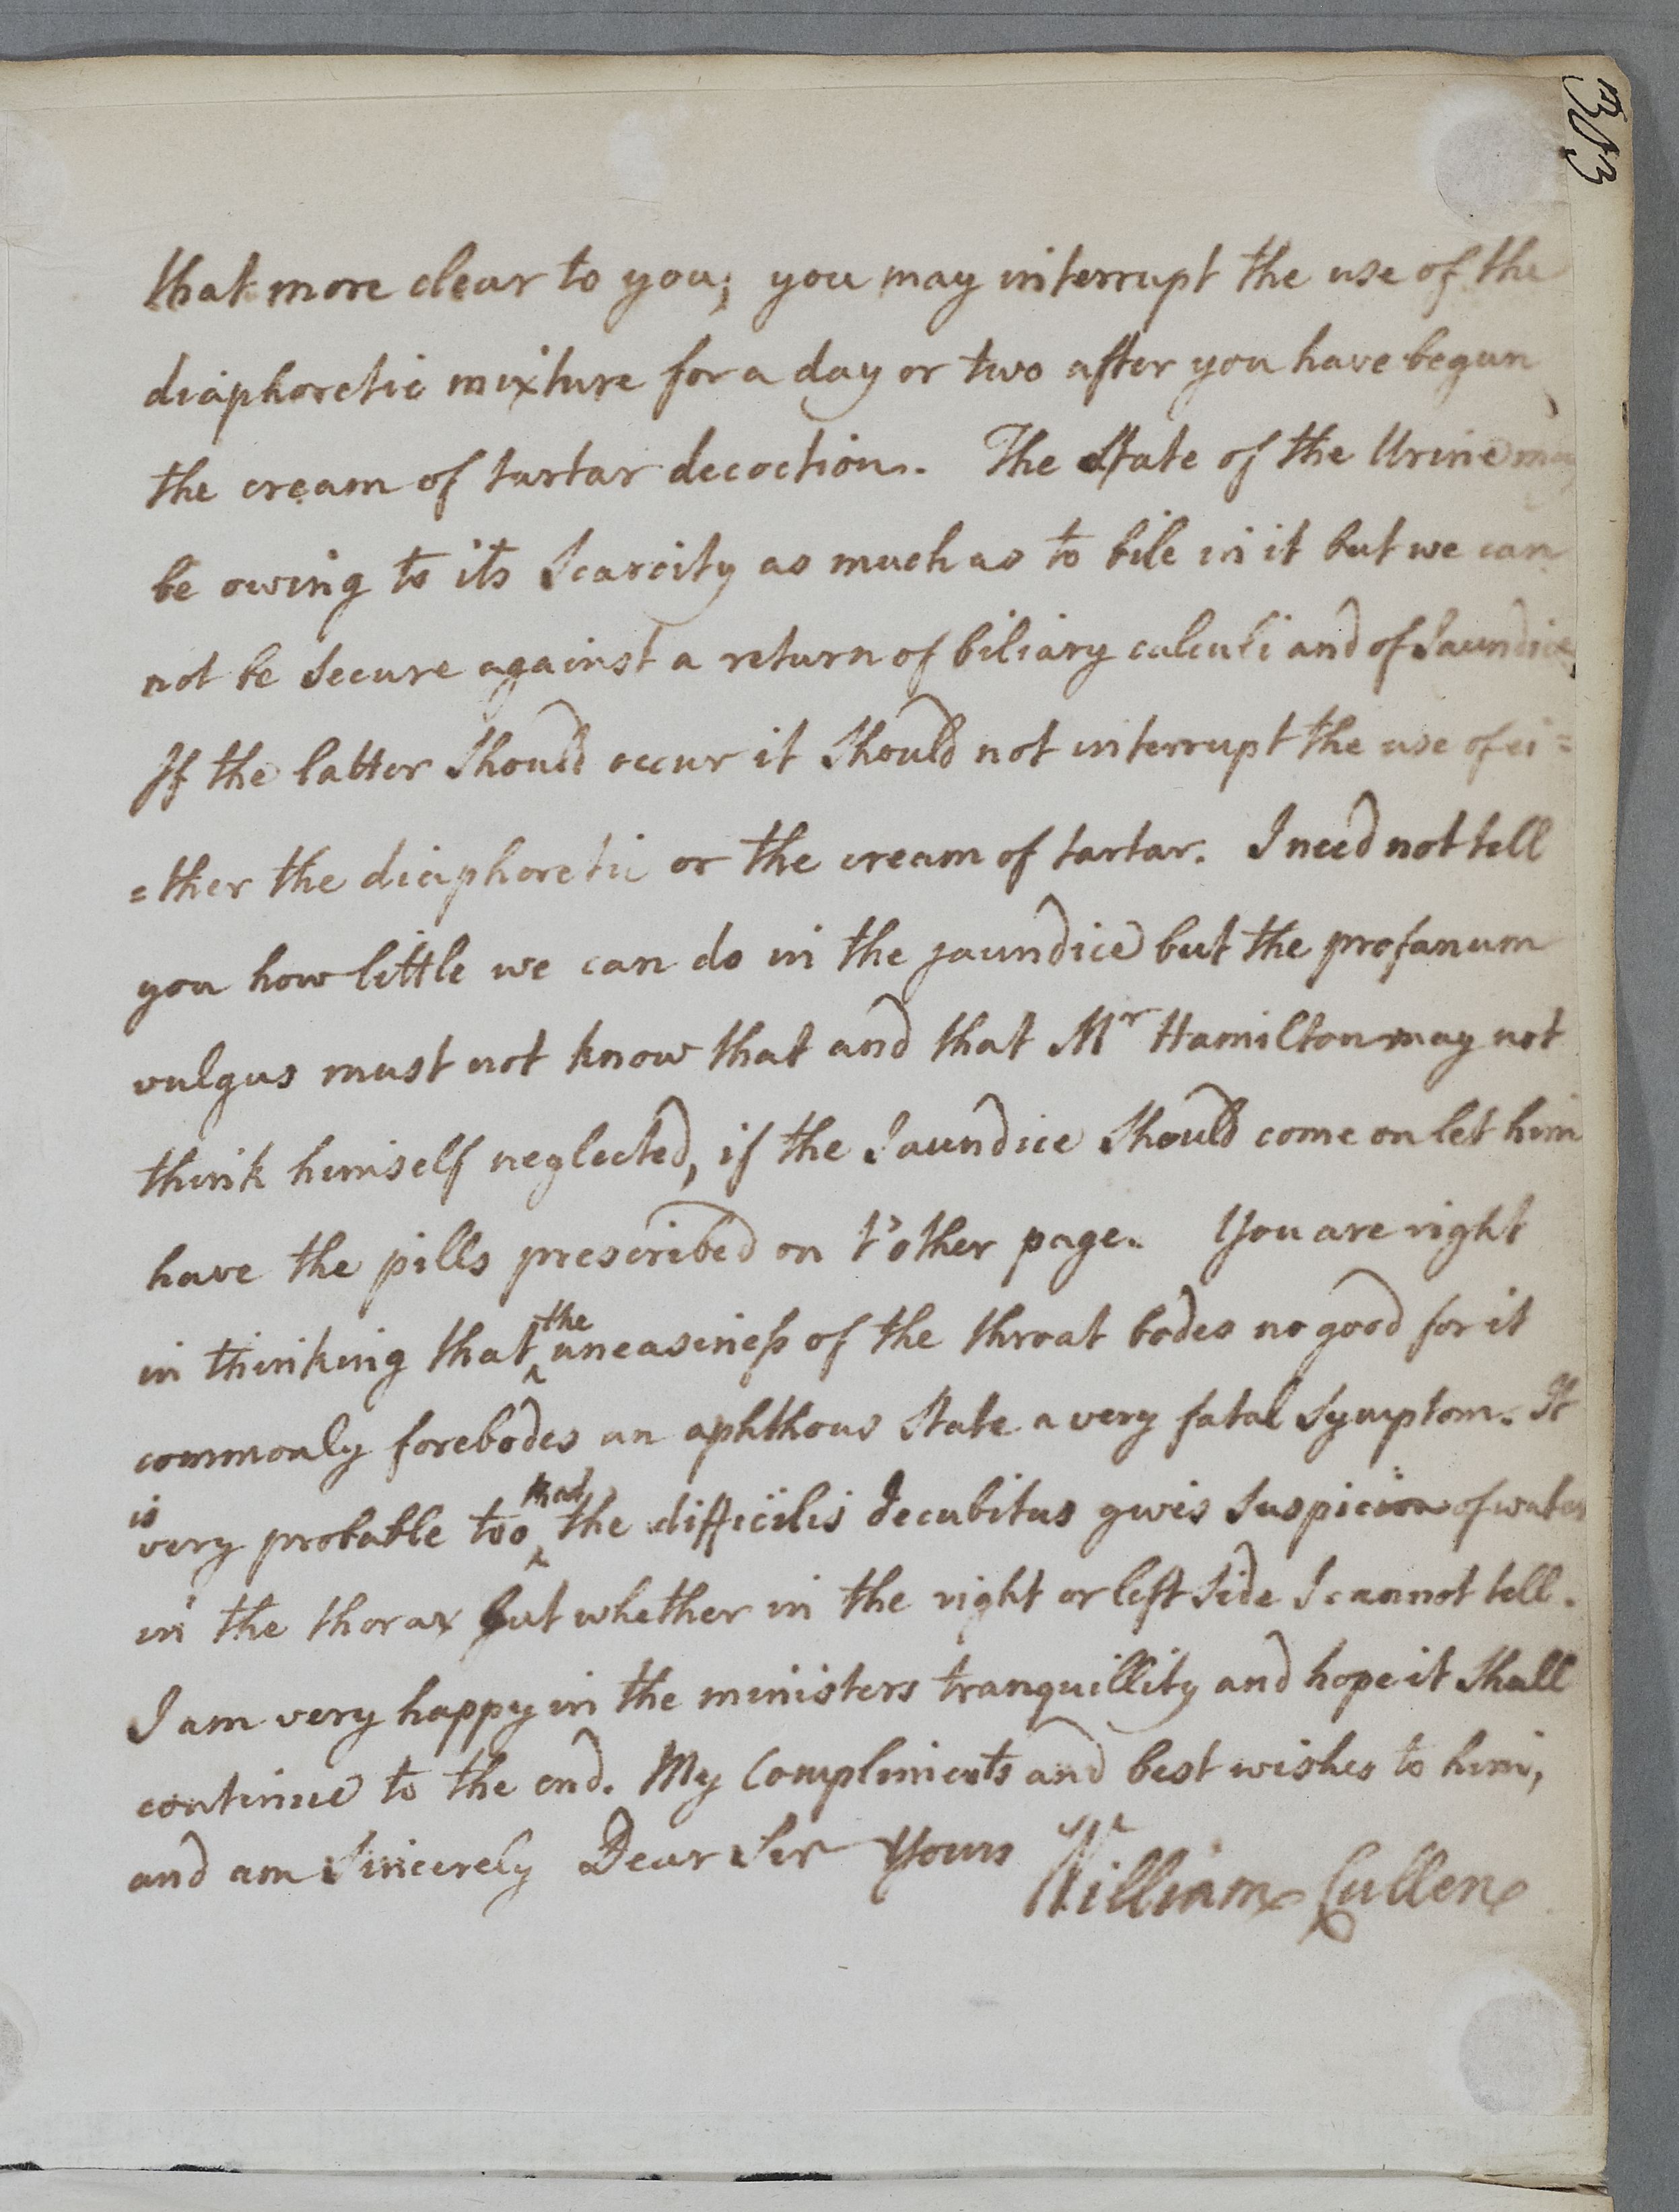 303
that more clear to you; you may interrupt the use of the
diaphoretic mixture for a day or two after you have begun
the cream of tartar decoction. The State of the Urine may
be owing to its Scarcity as much as to bile in it but we can
not be Secure against a return of biliary calculi and of Jaundice
If the latter Should occur it Should not interrupt the use of ei=
=ther the diaphoretic or the cream of tartar. I need not tell
you how little we can do in the jaundice but the profanum
vulgus must not know that and that Mr Hamilton may not
think himself neglected, if the Jaundice Should come on let him
have the pills prescribed on t'other page. You are right
in thinking that the uneasiness of the throat bodes no good for it
commonly forebodes an aphthous State a very fatal Symptom. It
is very probable too that the difficilis decubitus gives Suspicion of water
in the thorax but whether in the right or left Side I cannot tell.
I am very happy in the ministers tranquillity and hope it Shall
continue to the end. My Compliments and best wishes to him,
and am Sincerely Dear Sir Yours William Cullen